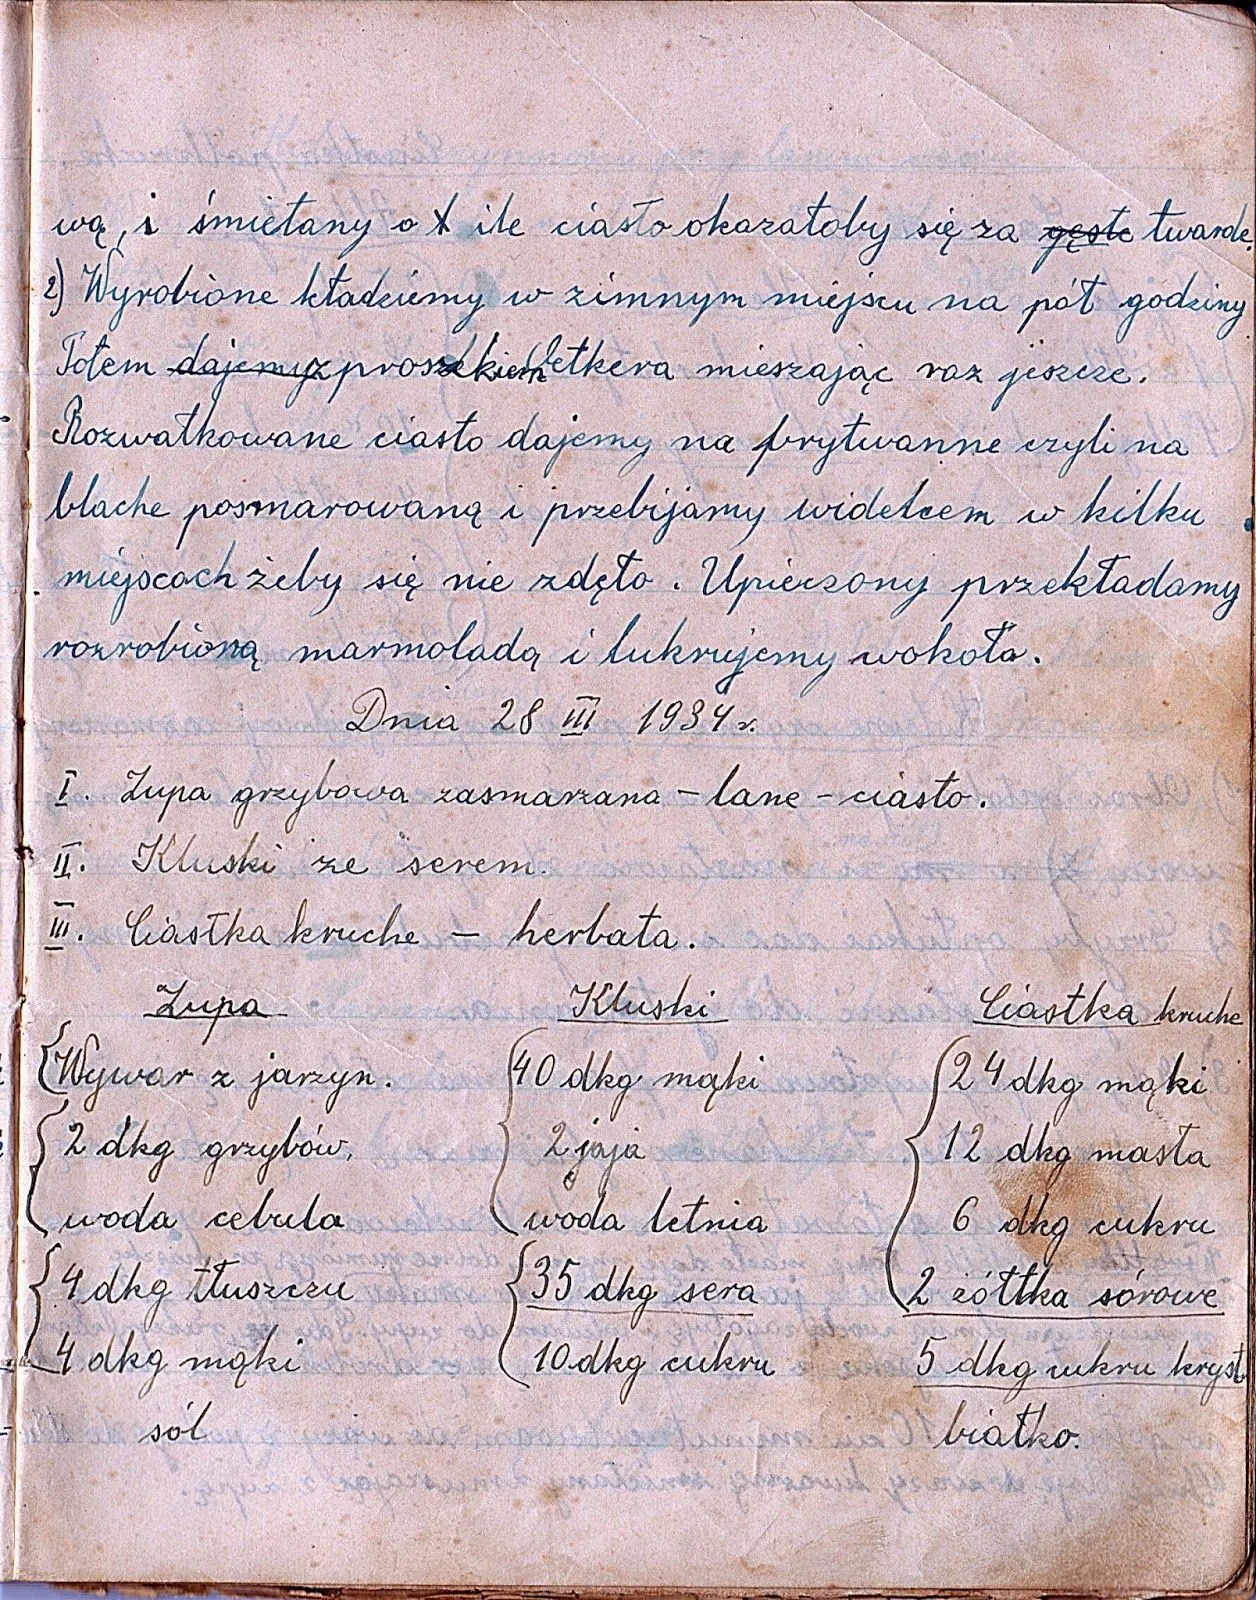 wą, i śmietany o ile ciasto okazałoby się za gęste twarde.
2) Wyrobione kładziemy w zimnym miejscu na pół godziny
Potem dajemy z proszkiem Oetkera mieszając raz jeszcze.
Rozwałkowane ciasto dajemy na brytwanne czyli na
blache posmarowaną i przebijamy widelcem w kilku
miejscach żeby się nie zdęło. Upieczony przekładamy
rozrobioną marmoladą i lukrujemy wokoła.
Dnia 28 III 1934 r.
I. Zupa grzybowa zasmarzana – lane – ciasto.
II. Kluski ze serem.
III. Ciastka kruche – herbata.
Zupa
Wywar z jarzyn.
2 dkg grzybów,
woda cebula
4 dkg tłuszczu
4 dkg mąki
sól
Kluski
40 dkg mąki
2 jaja
woda letnia
35 dkg sera
10 dkg cukru
Ciastka kruche
24 dkg mąki
12 dkg masła
6 dkg cukru
2 żółtka sórowe
5 dkg cukru kryst
białko.